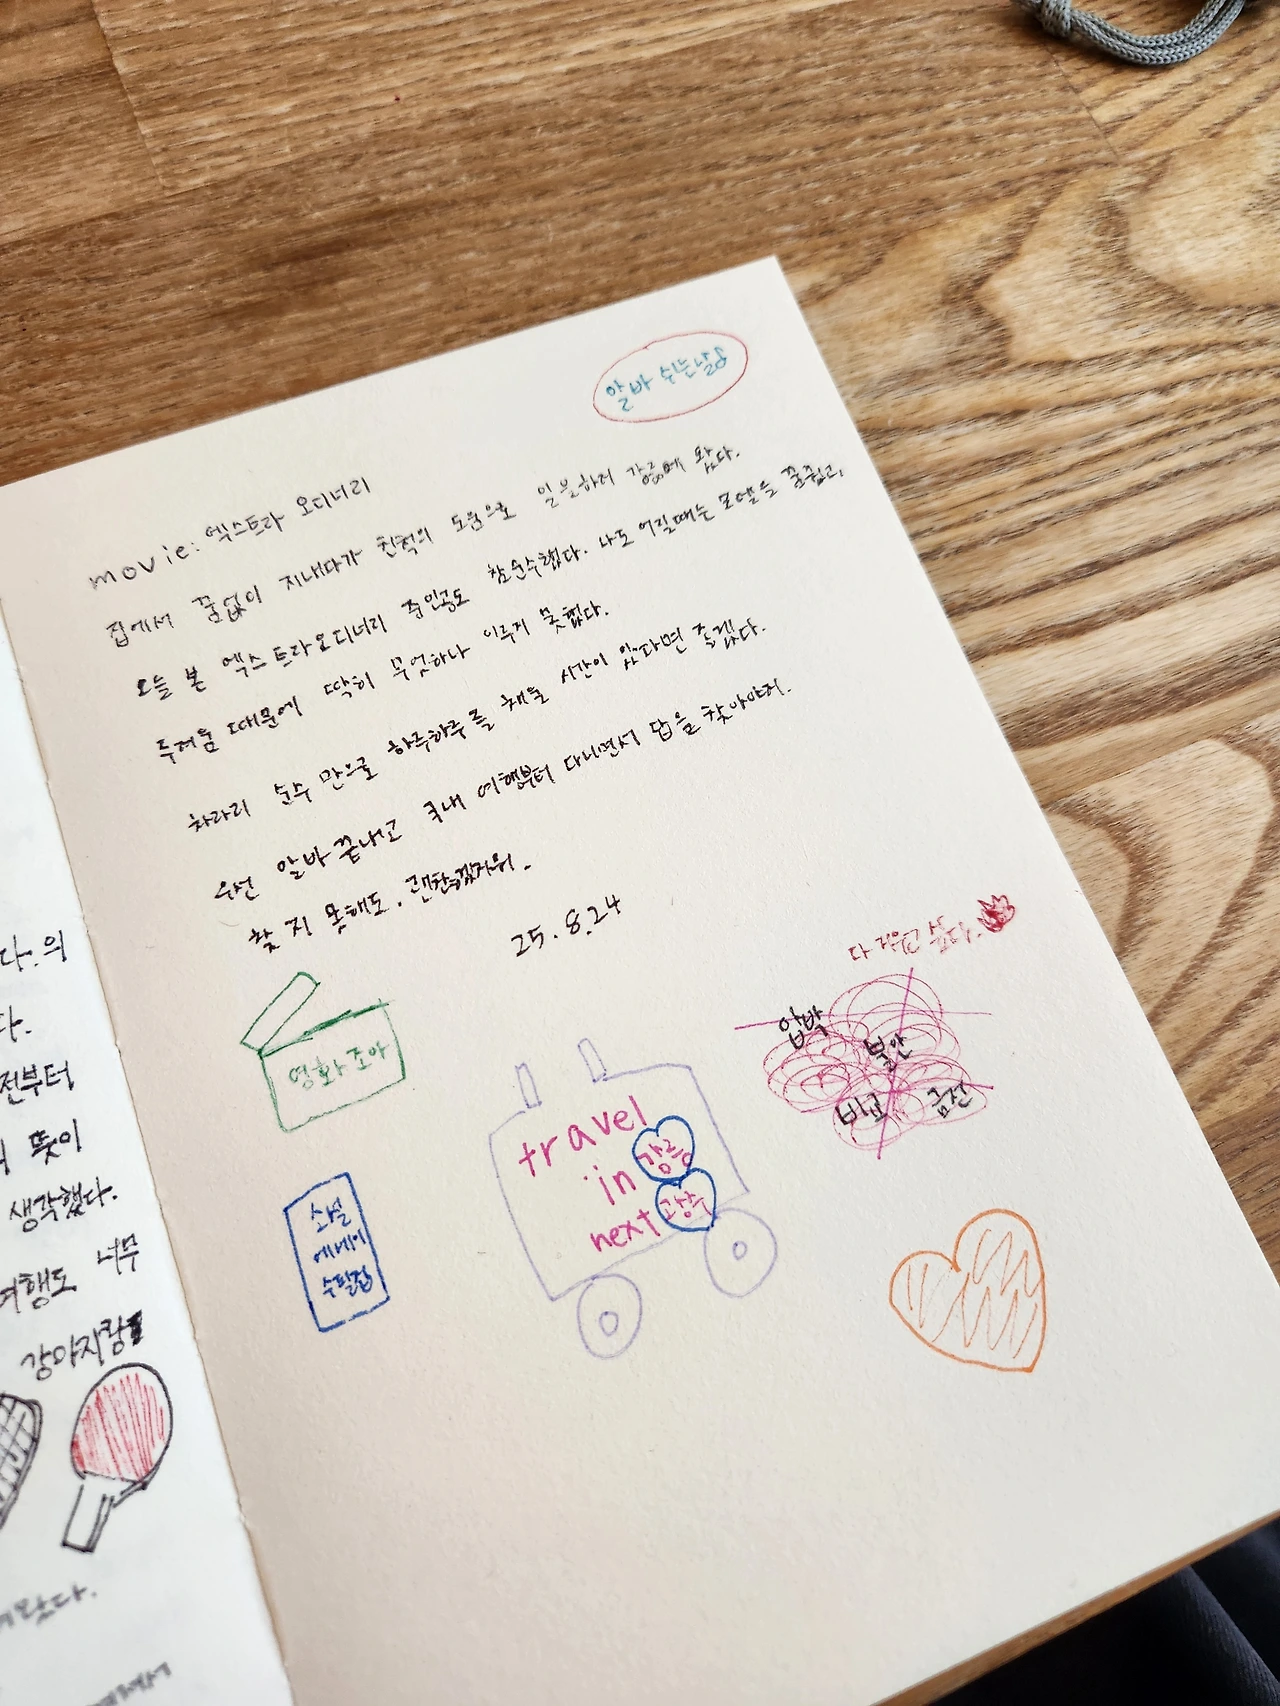 알바 쉬는날
movie: 엑스트라 오디너리
집에서 꿈없이 지내다가 친척의 도움으로 일을하러 강릉에 왔다.
오늘 본 엑스트라오디너리 주인공도 참순수했다. 나도 어릴때는 모델을 꿈꿨고,
두려움 때문에 딱히 무엇하나 이루지 못했다.
차라리 순수 만으로 하루하루를 채울 시간이 있다면 좋겠다.
우선 알바끝내고 국내 여행부터 다니면서 답을 찾아야지.
찾지 못해도. 괜찮겠지뭐.
25.8.24
다 싶다.
영화 조아
압박
불안
비교
금전
travel
in 강릉
next
소설
에세이
수필집
다. 의
다.
전부터
뜻이
생각했다.
여행도 너무
강아지랑